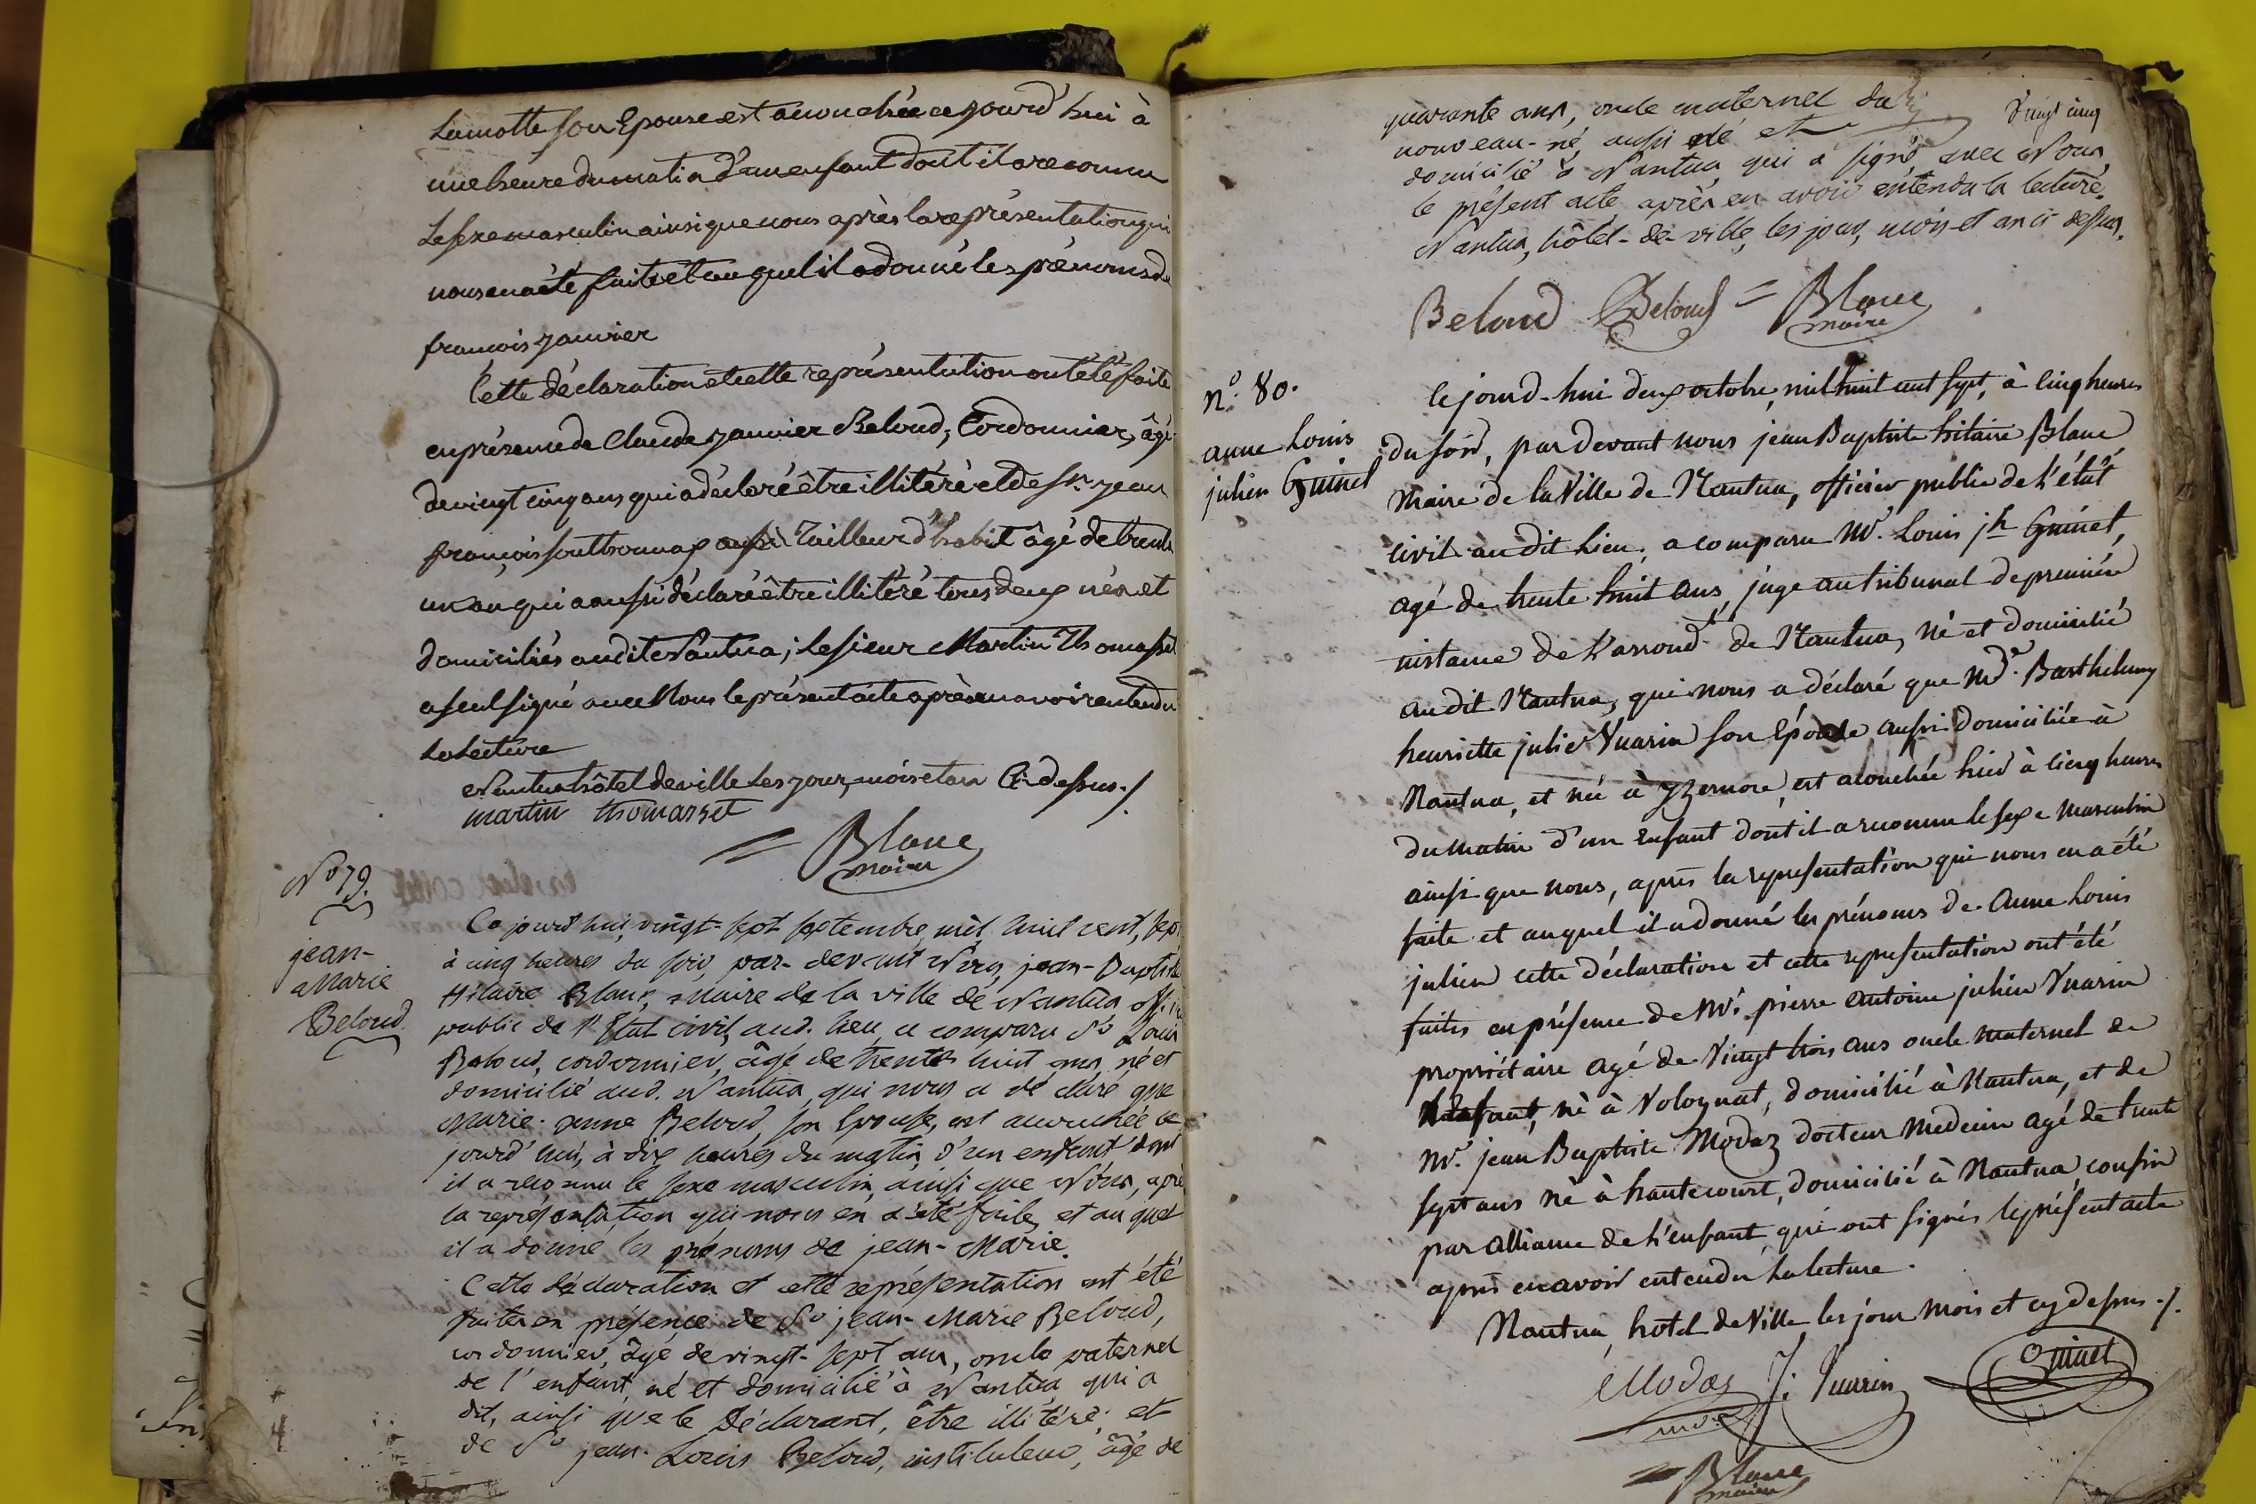 Lamotte son Epouse est accouchée cejourd'hui à
une heure du matin d'un enfant dont il a reconnu
Le sexe masculin ainsi que nous après la représentation qui
nous en a été faite et au quel il a donné les prénoms de
françois janvier
Cette déclaration et cette représentation ont été faites
en présence de Claude janvier Beloud, Cordonnier, âgé
de vingt cinq ans qui a déclaré être illitéré et de sr. jean
françois southonnax aussi Tailleur d'habit âgé de trente
un an qui a aussi déclaré être illitéré tous deux nés et
domiciliés audit Nantua; le sieur Martin Thomasset
a seul signé avec Nous le présent acte après en avoir entendu
la Lecture
Nantua hôtel de ville Les jour, mois et an Ci-dessus./.
martin thomasset
= Blanc
maire
No 79.
jean-
Marie
Beloud.
Ce jourd'hui, vingt-sept septembre mil huit cent, sept
à cinq heures du soir, par-devant Nous, jean-Baptiste
Hilaire Blanc, Maire de la ville de Nantua officier
public de l'État civil, aud. lieu, a comparu Sr Louis
Beloud, cordonnier, âgé de trente huit ans, né et
domicilié aud. Nantua, qui nous a déclaré que
Marie-anne Beloud son Epouse, est accouchée ce
jourd'hui, à dix heures du matin, d'un enfant dont
il a reconnu le sexe masculin, ainsi que Nous, après
la représentation qui nous en a été faite, et au quel
il a donné les prénoms de jean-Marie.
Cette déclaration et cette représentation ont été
faites en présence de Sr jean-Marie Beloud,
cordonnier, âgé de vingt-sept ans, oncle paternel
de l'enfant, né et domicilié à Nantua, qui a
dit, ainsi que le Déclarant, être illitéré; et
de Sr jean-Louis Beloud, instituteur, âgé de
Vingt cinq
quarante ans, oncle maternel du
nouveau-né, aussi né et
domicilié à Nantua, qui a signé avec Nous,
le présent acte après en avoir entendu la lecture.
Nantua, hôtel-de-ville, les jour, mois et an ci-dessus.
Beloud Beloud = Blanc
maire
n.o 80.
anne Louis
julien Guinet
Cejourd-hui deux octobre, mil huit cent sept, à cinq heures
du soir, par devant nous jean Baptiste hilaire Blanc
Maire de la Ville de Nantua, officier public de l'état
civil audit Lieu, a comparu Mr. Louis jh Guinet,
agé de trente huit ans, juge au tribunal de première
instance de l'arrondt. de Nantua, né et domicilié
audit Nantua, qui nous a déclaré que Mde. Barthelemy
henriette julie Vuarin son Épouse aussi domiciliée à
Nantua, et née à yzernore, est acouchée hier à cinq heures
du matin d'un Enfant dont il a reconnu le sexe masculin
ainsi que nous, après la representation qui nous en a été
faite et auquel il a donné les prénoms de Anne Louis
julien cette déclaration et cette representation ont été
faites en présence de Mr. pierre antoine julien Vuarin
propriétaire agé de Vingt trois ans oncle maternel de
né à Volognat, domicilié à Nantua, et de
Mr. jean Baptiste Modaz docteur Medecin agé de trente
sept ans né à hautecourt, domicilié à Nantua cousin
par alliance de l'enfant, qui ont signés le présent acte
après en avoir entendu la lecture.
Nantua, hotel de Ville les jour mois et cy dessus ./.
Modaz J: Vuarin Guinet
= Blanc
maire